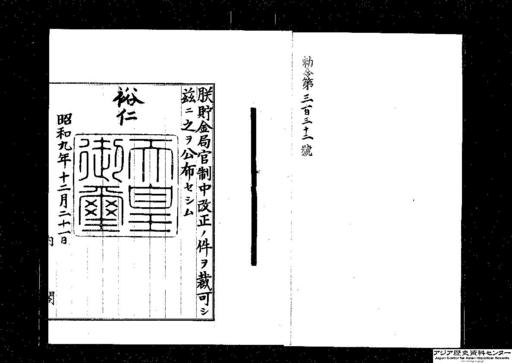 勅令第三百三十二號
朕貯金局官制中改正ノ件ヲ裁可シ
茲ニ之ヲ公布セシム
裕仁
天皇
御璽
昭和九年十二月二十一日
内閣
アジア歴史資料センター
Japan Center for Asian Historical Records